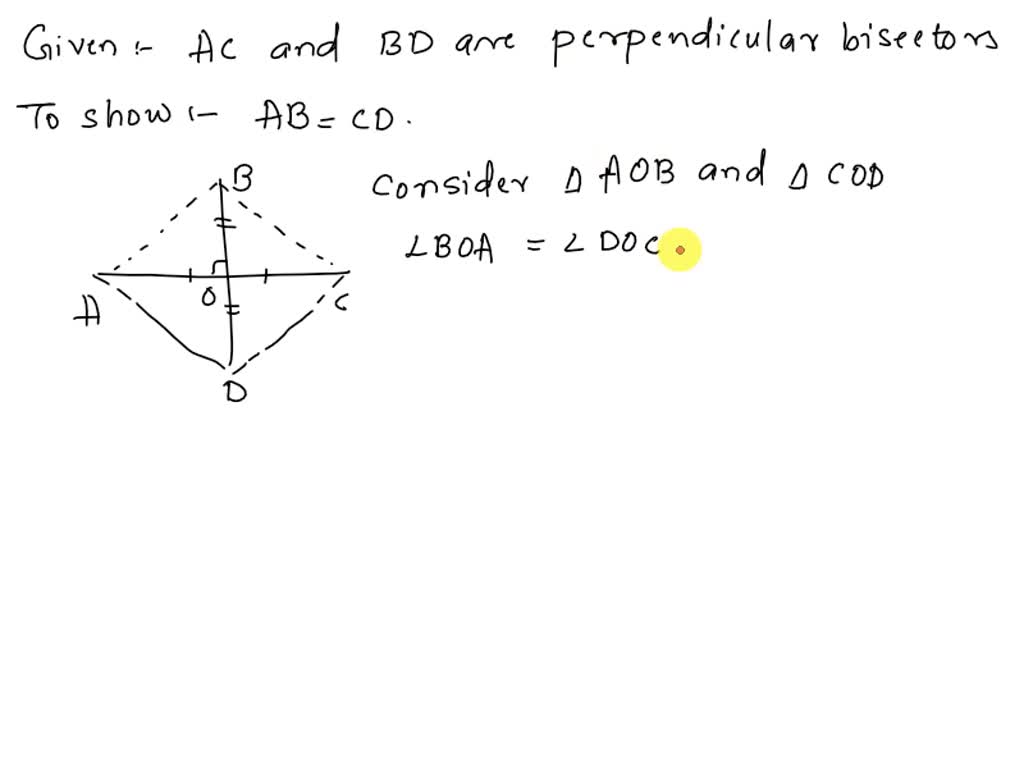 Given :- AC and BD are perpendicular bisectors
To show :- AB = CD.
B
Consider Δ AOB and Δ COD
∠BOA = ∠DOC
A
O
C
D